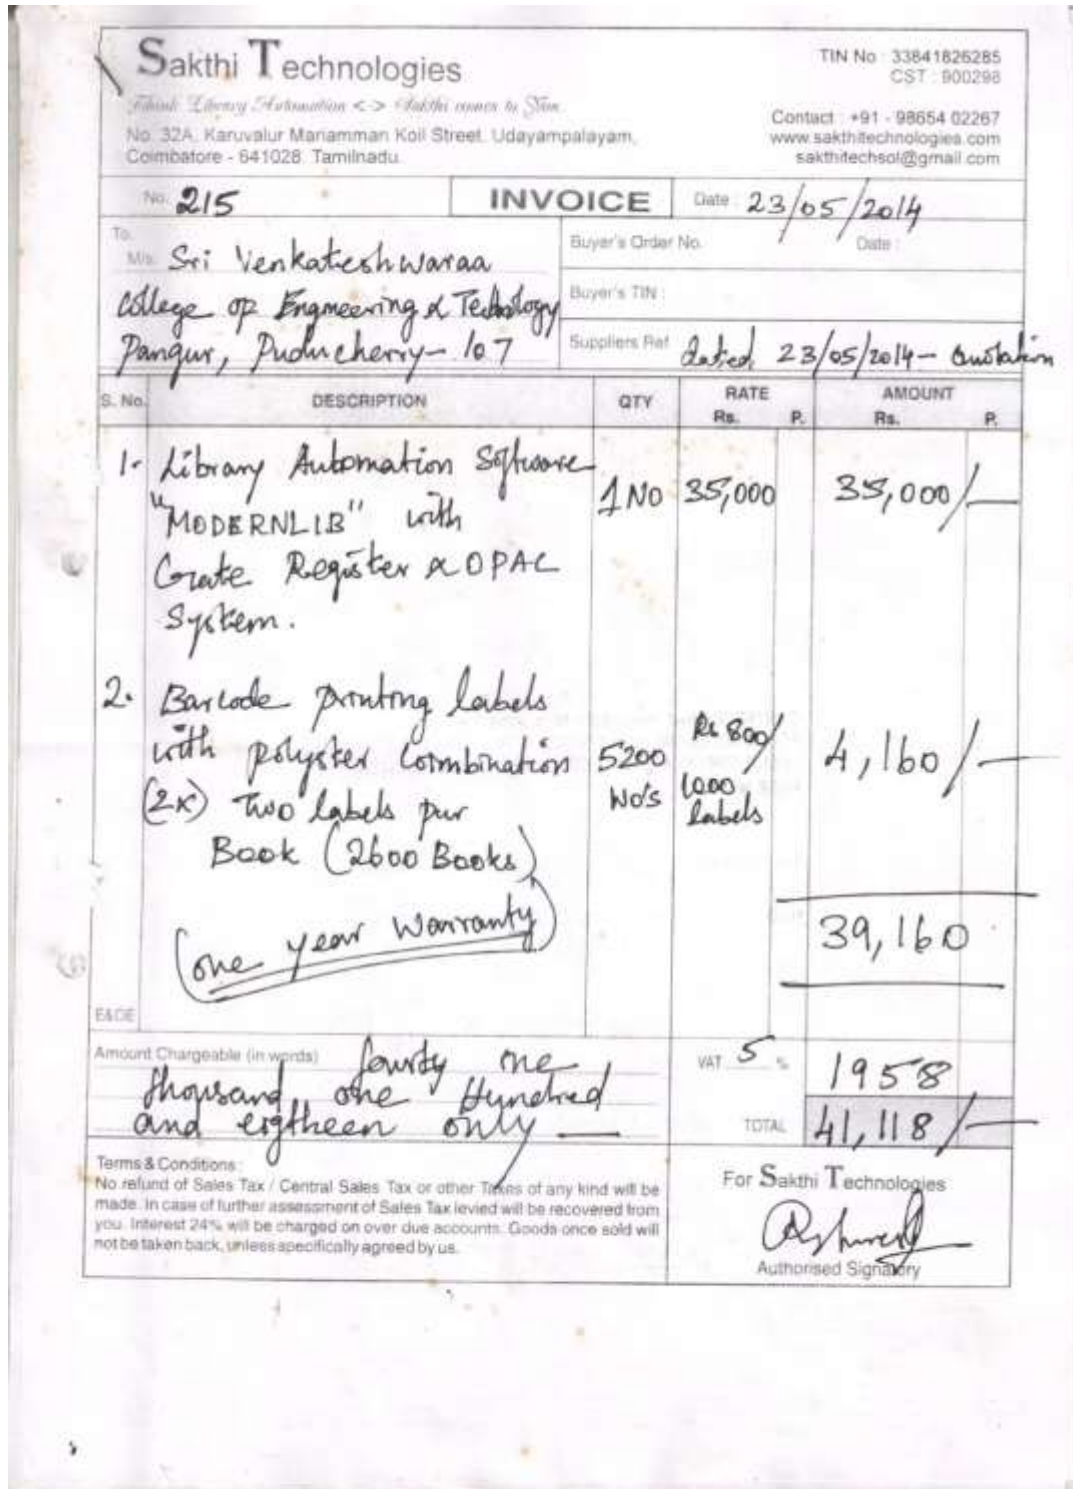 Sakthi Technologies
Think Library Automation <-> Sakthi comes to You
No. 32A, Karuvalur Mariamman Koil Street, Udayampalayam,
Coimbatore - 641028. Tamilnadu.
TIN No : 33841826285
CST : 900298
Contact : +91 - 98654 02267
www.sakthitechnologies.com
sakthitechsol@gmail.com
No. 215
INVOICE
Date : 23/05/2014
To.
M/s. Sri Venkateshwaraa
College of Engineering & Technology
Pangur, Puducherry - 107
Buyer's Order No. Date :
Buyer's TIN :
Suppliers Ref dated 23/05/2014 - Quotation
S. No. DESCRIPTION QTY RATE AMOUNT
Rs. P. Rs. P.
1. Library Automation Software
"MODERNLIB" with 1 NO 35,000 35,000/-
Gate Register & OPAC
System.
2. Barcode printing labels
with polyster Combination 5200 Rs 800/ 4,160/-
(2x) Two labels per No's 1000
Book (2600 Books) labels
(one year Warranty)
39,160
E&OE
Amount Chargeable (in words) fourty one
thousand one Hundred
and eigtheen only
VAT 5 % 1958
TOTAL 41,118/-
Terms & Conditions :
No refund of Sales Tax / Central Sales Tax or other Taxes of any kind will be
made. In case of further assessment of Sales Tax levied will be recovered from
you. Interest 24% will be charged on over due accounts. Goods once sold will
not be taken back, unless specifically agreed by us.
For Sakthi Technologies
Authorised Signatory